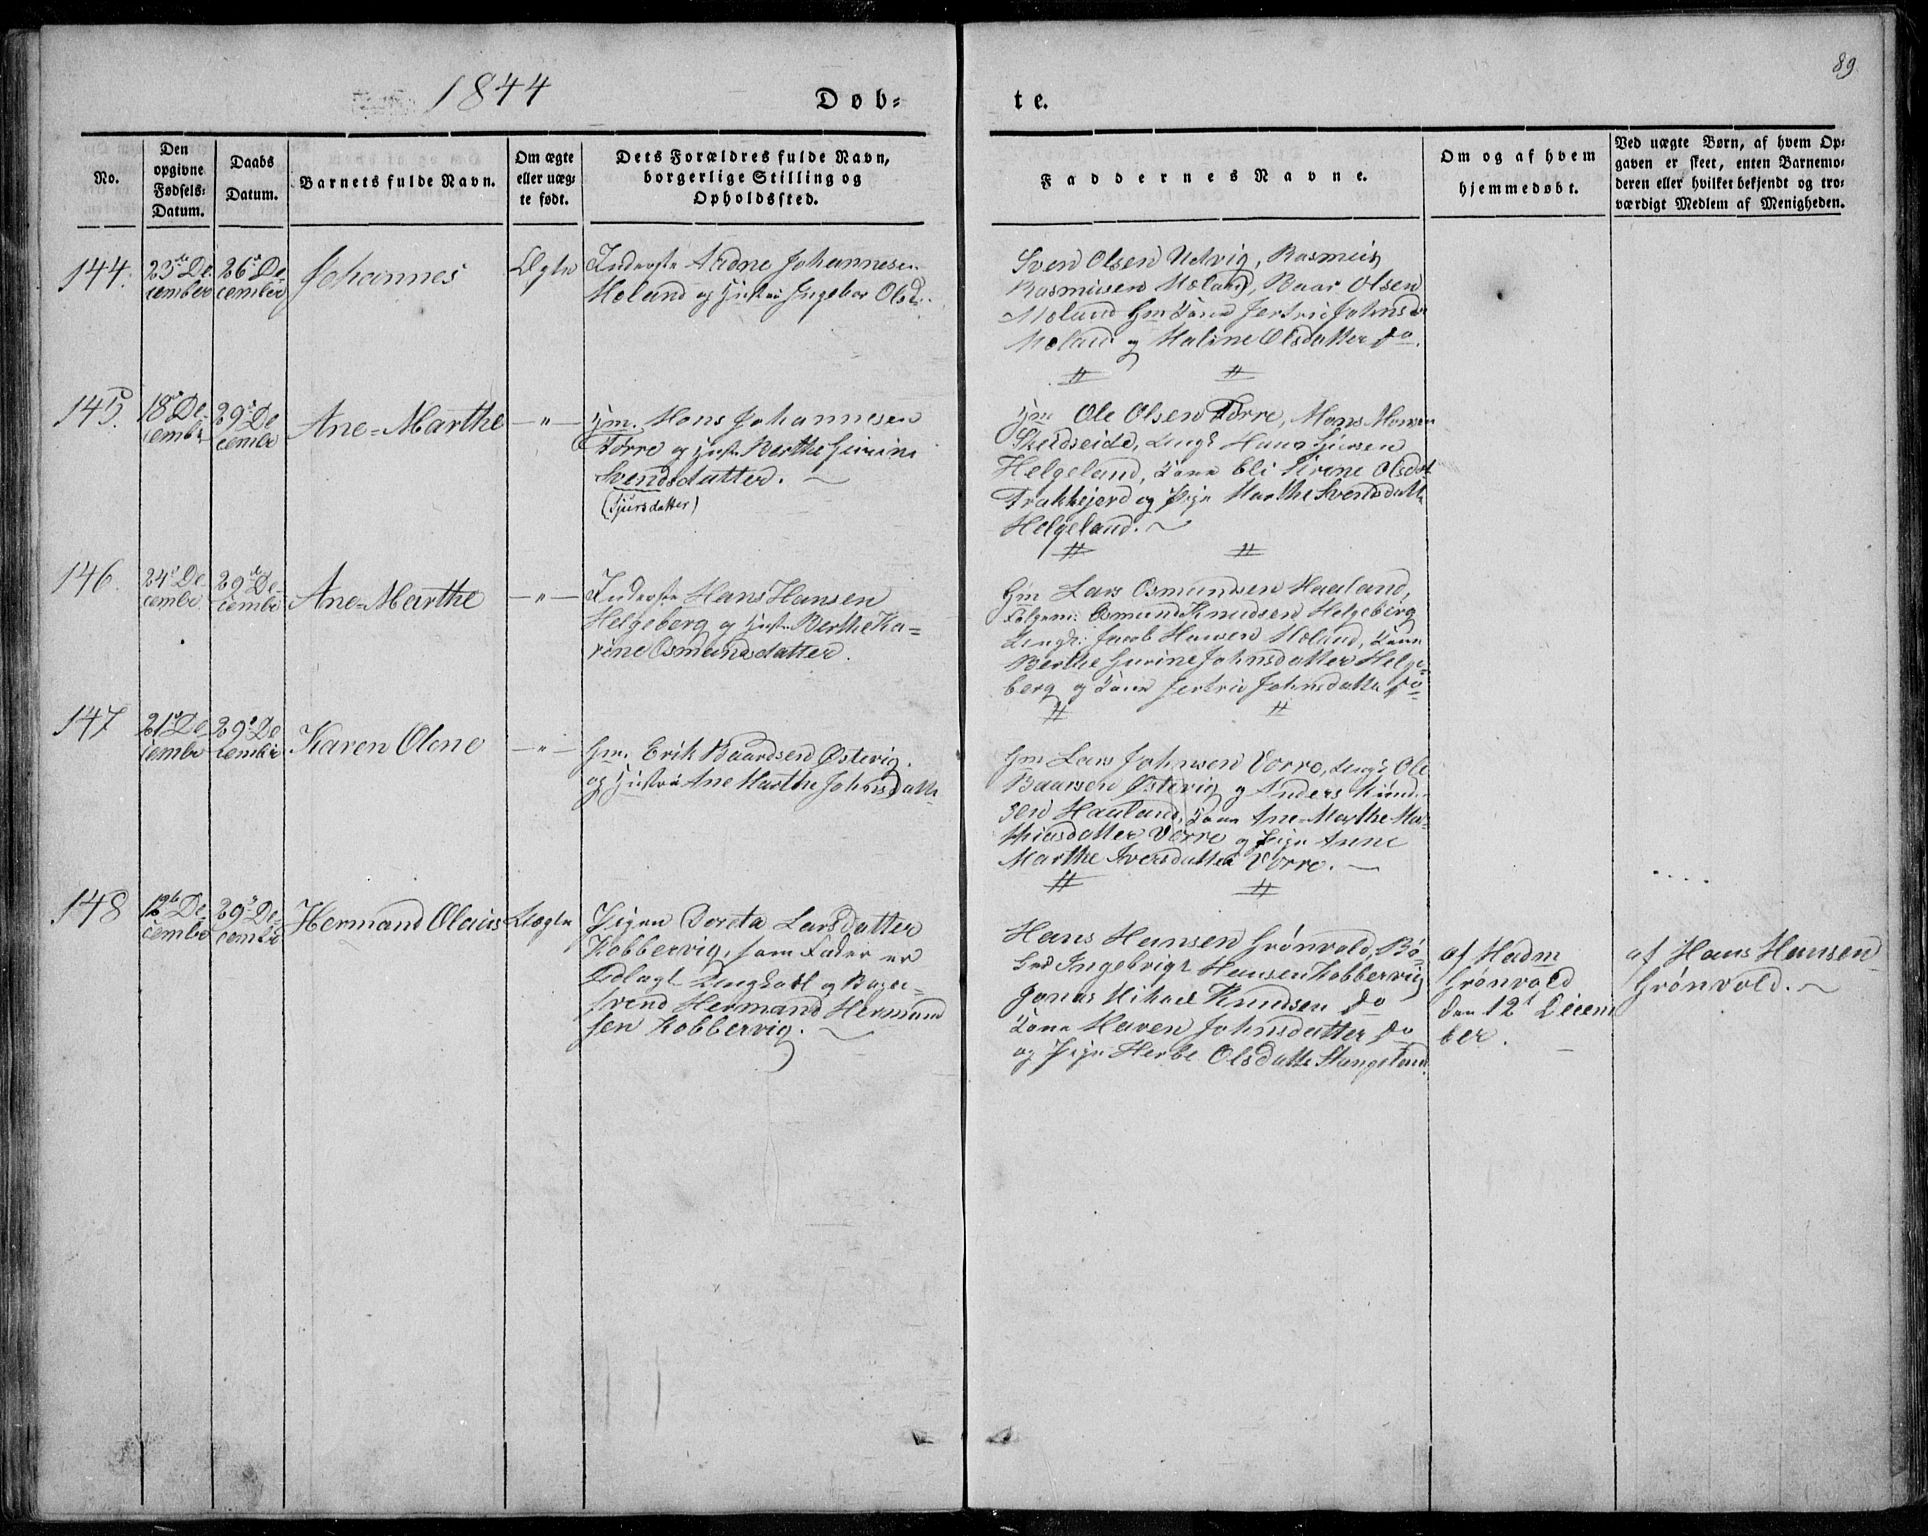 1844
Døb-
te.
89
No.
Den opgivne Fødsels-Datum.
Daabs Datum.
Barnets fulde Navn.
Om ægte eller uægte født.
Dets Forældres fulde Navn, borgerlige Stilling og Opholdssted.
Faddernes Navne.
Om og af hvem hjemmedøbt.
Ved uægte Børn, af hvem Opgaven er skeet, enten Barnemoderen eller hvilket bekjendt og troværdigt Medlem af Menigheden.
144.
23 De
cember
26 De
cember
Johannes
Ægte
Inderste Aadne Johannesen
Moland og Hustru Ingebor Olsd.
Sven Olsen Udvig, Rasmus
Rasmusen Moland, Baar Olsen
Moland Gm Kone Jertrud Johnsd
Moland og Maline Olsdatter do
145.
18 De
cembr
29 De
cembr
Ane-Marthe
— " —
Gm. Mons Johannesen
Førre og Hust. Berthe Gurine
Svendsdatter.
(Sjursdatter)
Gm Ole Olsen Førre, Mons Monsen
Skeidseide, Ungk Hans
Helgeland, Kone Eli Sirene Olsdat
Frakkejord og Pige Marthe Svendsdatt
Helgeland.
146.
24 De
cembr
29 De
cembr
Ane-Marthe
— " —
Inderste Hans Hansen
Helgeberg og Hust. Berthe Ka-
rine Osmundsdatter.
Gm Lars Osmundsen Haaland,
Følgem: Osmund Knudsen Helgeberg
Ungk: Jacob Hansen Moland, Kone
Berthe Gurine Johnsdatter Helge-
berg og Kone Jertrud Johnsdatter do
147
21 De
cembr
29 De
cember
Karen Olene
— " —
Gm. Erik Baardsen Østevig.
og Hustru Ane Marthe Johnsdatte
Gm Lars Johnsen Vorre, Ungk Ole
Baarsen Østevig og Anders Knud-
sen Haaland, Kone Ane-Marthe Ma-
thiasdatter Vorre og Pige Anne
Marthe Iversdatter Vorre.
148
12 De
cembr
29 De-
cembr
Hermand Olaus
Uægte
Pigen Doreta Larsdatter
Kobbervig, som Fader er
Udlagt Ungkarl og Bager-
svend Hermand Herman
sen Kobbervig.
Hans Hansen Grønvold,
Ingebrigt Hansen Kobbervig
Jonas Mikael Knudsen do
Kone Maren Johnsdatter do
og Pige Herbe Olsdatte Stangeland.
af Madm
Grønvold
den 12 Decem
ber.
af Hans Hansen
Grønvold.